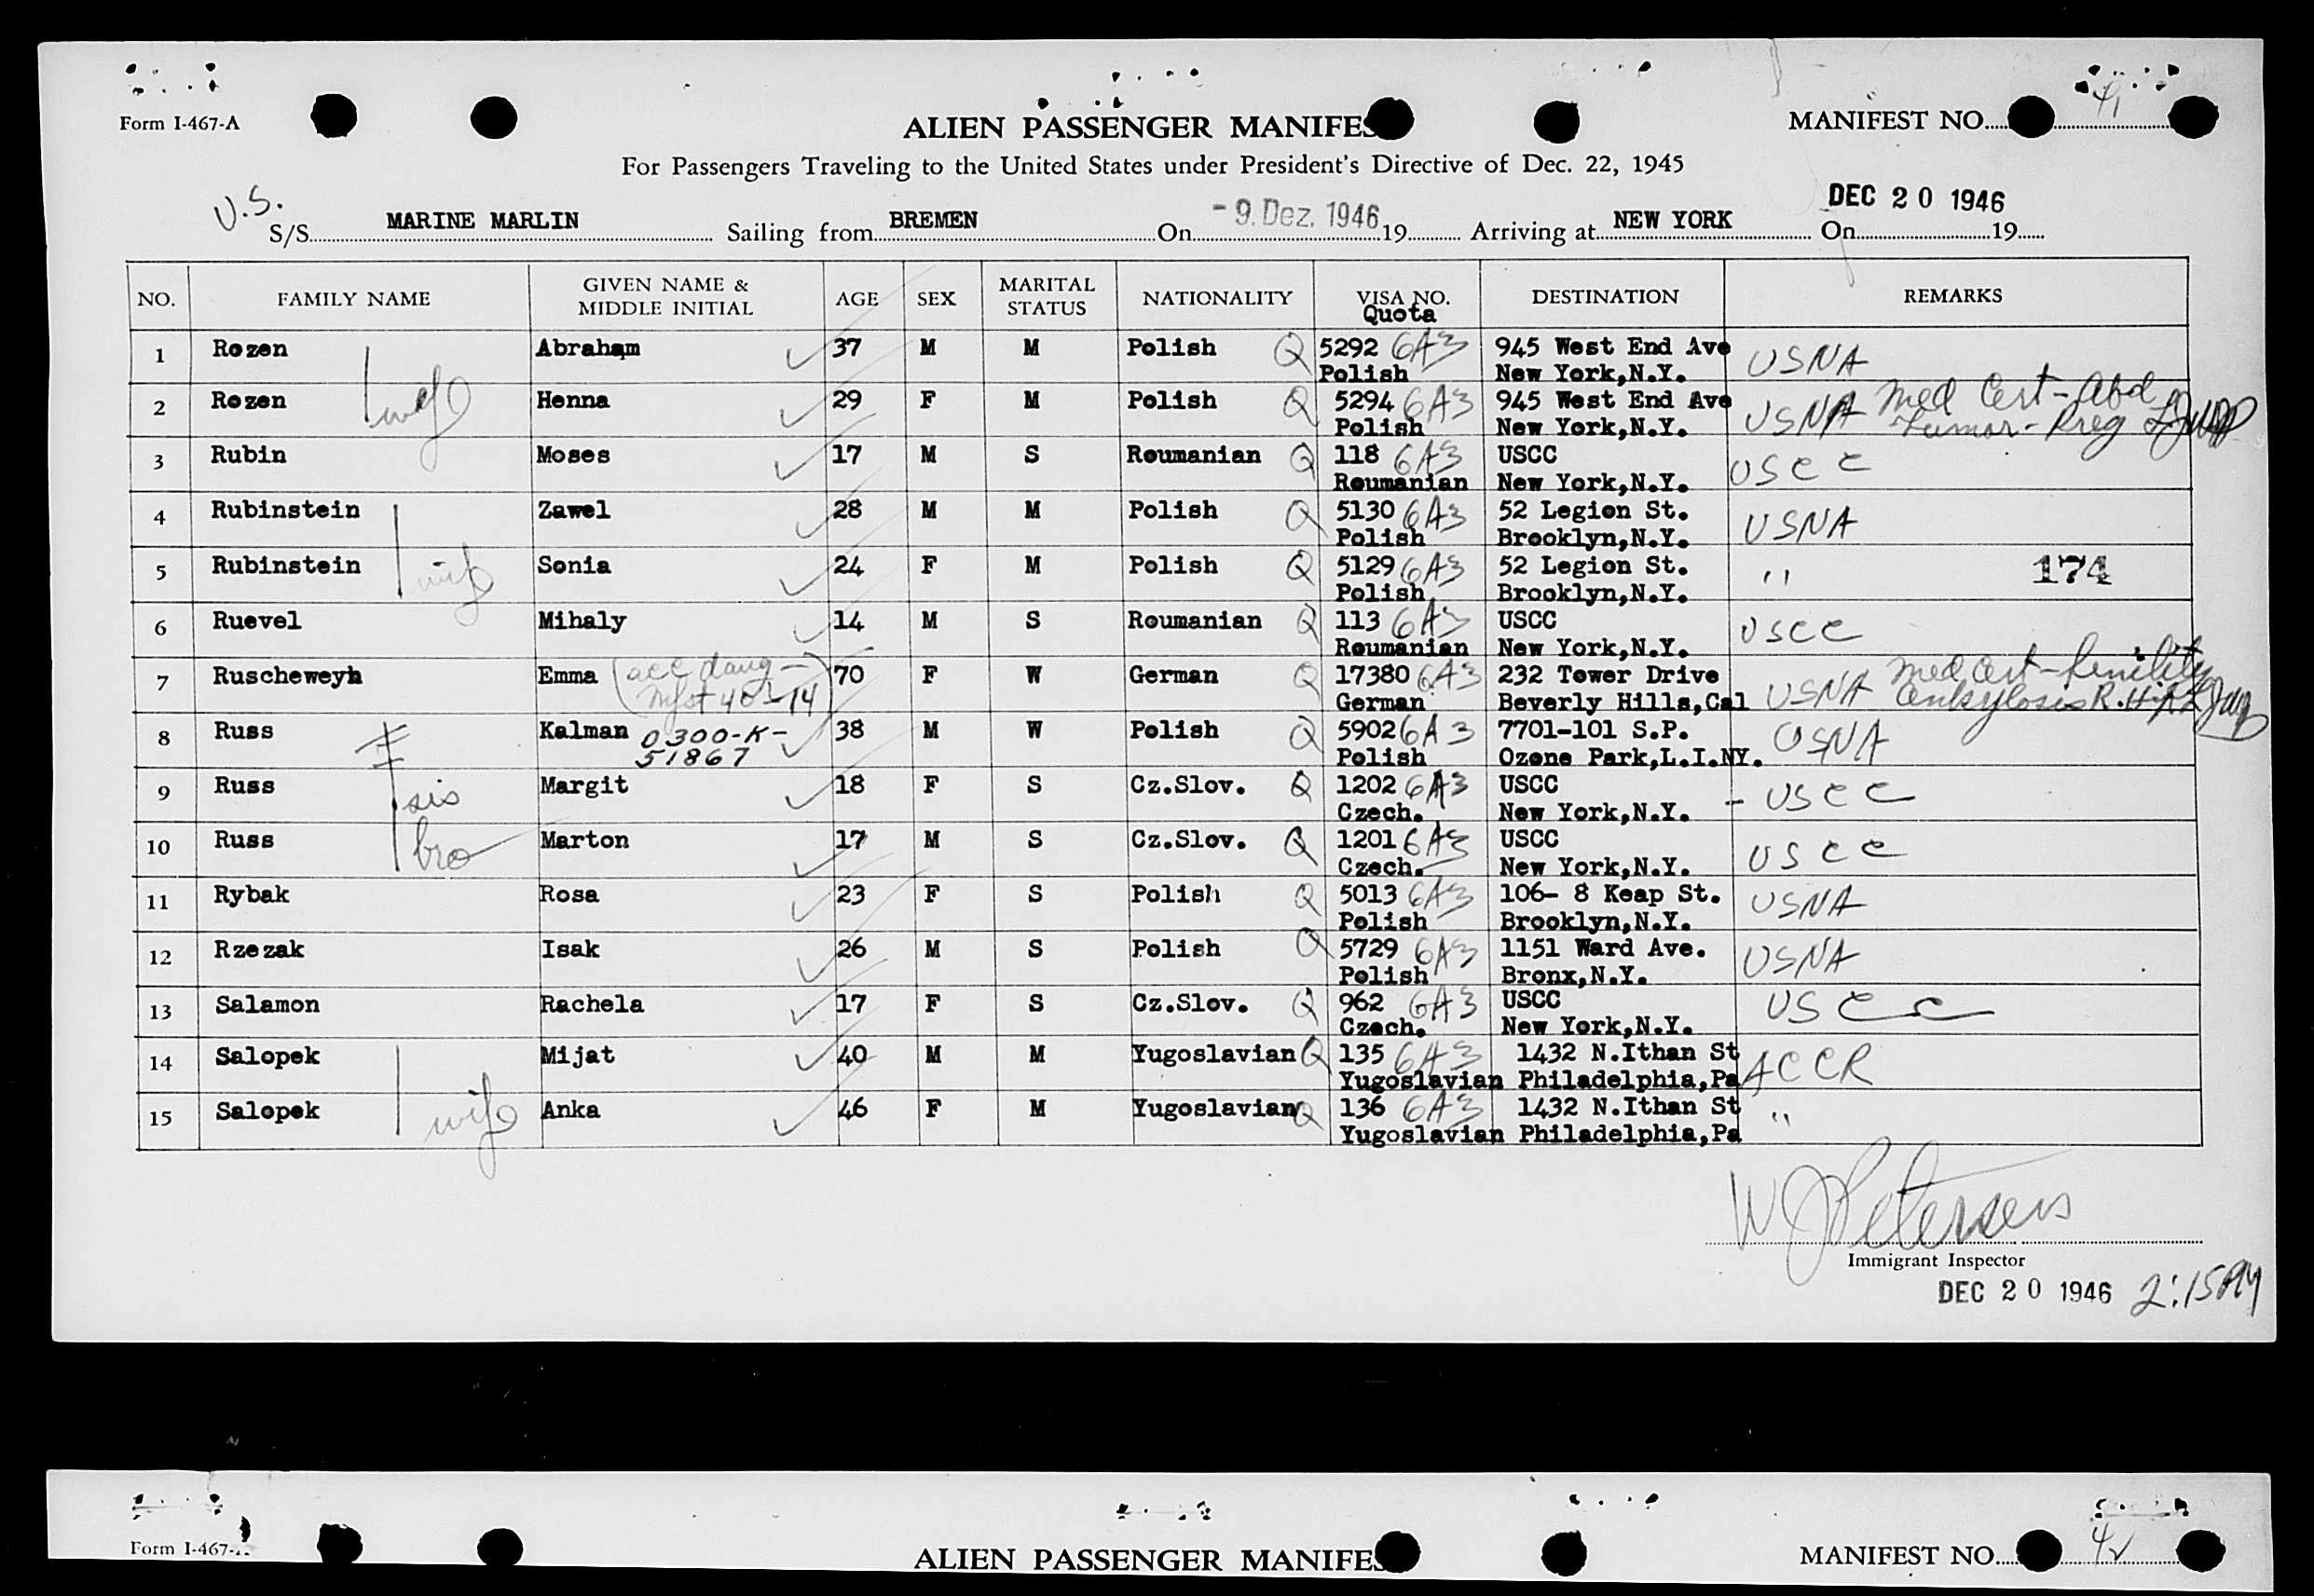 Form I-467-A
ALIEN PASSENGER MANIFES
MANIFEST NO. 41
For Passengers Traveling to the United States under President's Directive of Dec. 22, 1945
U.S.
S/S MARINE MARLIN Sailing from BREMEN On - 9. Dez. 1946 19 Arriving at NEW YORK On DEC 20 1946 19
NO. FAMILY NAME GIVEN NAME & MIDDLE INITIAL AGE SEX MARITAL STATUS NATIONALITY VISA NO. Quota DESTINATION REMARKS
1 Rozen Abraham 37 M M Polish Q 5292 6A3 945 West End Ave USNA
Polish New York,N.Y.
2 Rozen wife Henna 29 F M Polish Q 5294 6A3 945 West End Ave USNA Med Cert - Abd
Polish New York,N.Y. Tumor - Preg
3 Rubin Moses 17 M S Roumanian Q 118 6A3 USCC USCC
Roumanian New York,N.Y.
4 Rubinstein Zawel 28 M M Polish Q 5130 6A3 52 Legion St. USNA
Polish Brooklyn,N.Y.
5 Rubinstein wife Sonia 24 F M Polish Q 5129 6A3 52 Legion St. " 174
Polish Brooklyn,N.Y.
6 Ruevel Mihaly 14 M S Roumanian Q 113 6A3 USCC USCC
Roumanian New York,N.Y.
7 Ruscheweyh Emma (acc daug - 70 F W German Q 17380 6A3 232 Tower Drive USNA Med Cert - Senility
Mfst 40-14) German Beverly Hills,Cal Ankylosis R. Hip
8 Russ Kalman 0300-K- 38 M W Polish Q 5902 6A3 7701-101 S.P. USNA
51867 Polish Ozone Park,L.I.NY.
9 Russ sis Margit 18 F S Cz.Slov. Q 1202 6A3 USCC - USCC
Czech. New York,N.Y.
10 Russ bro Marton 17 M S Cz.Slov. Q 1201 6A3 USCC USCC
Czech. New York,N.Y.
11 Rybak Rosa 23 F S Polish Q 5013 6A3 106- 8 Keap St. USNA
Polish Brooklyn,N.Y.
12 Rzezak Isak 26 M S Polish Q 5729 6A3 1151 Ward Ave. USNA
Polish Bronx,N.Y.
13 Salamon Rachela 17 F S Cz.Slov. Q 962 6A3 USCC USCC
Czech. New York,N.Y.
14 Salopek Mijat 40 M M Yugoslavian Q 135 6A3 1432 N.Ithan St ACCR
Yugoslavian Philadelphia,Pa
15 Salopek wife Anka 46 F M Yugoslavian Q 136 6A3 1432 N.Ithan St "
Yugoslavian Philadelphia,Pa
W J Petersen
Immigrant Inspector
DEC 20 1946 2:15PM
Form I-467-
ALIEN PASSENGER MANIFES
MANIFEST NO. 42